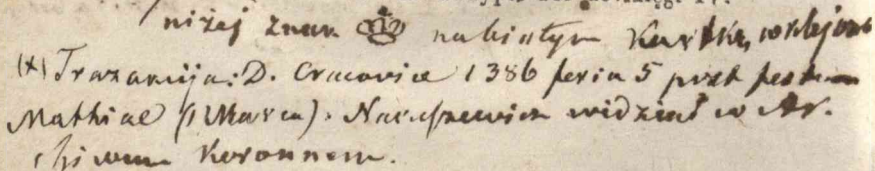 niżej znak na białym kartką wklejono
(*) Trazakcija: D. Cracoviae 1386 feria 5 post festum
Mathiae (1 Marca). Naruszewicz widział w Ar-
chiwum Koronnem.